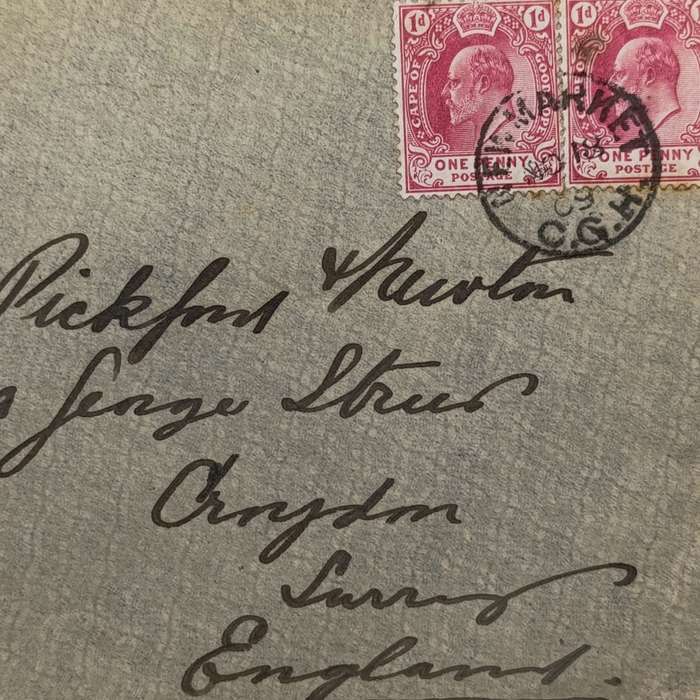 1d 1d
CAPE OF GOOD HOPE
ONE PENNY ONE PENNY
POSTAGE POSTAGE
MARKET
09
C.G.H.
Pickford & Newton
George Street
Croydon
Surrey
England.